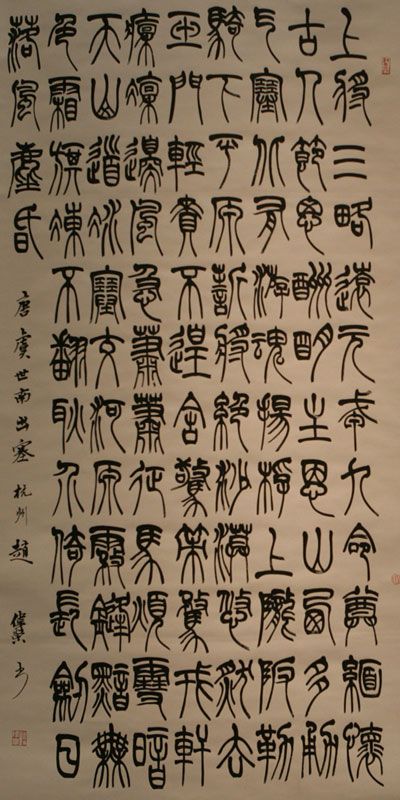 上將三略遠元戎九命尊緬懷
古人節思酬明主恩山西多勇
气塞北有游魂揚桴上隴阪勒
騎下平原誓將絕沙漠悠然去
玉門輕賫不遑舍驚策騖戎軒
凜凜邊風急蕭蕭征馬煩雪暗
天山道冰塞交河源霧鋒黯無
色霜旗凍不翻耿介倚長劍日
落風塵昏
唐虞世南出塞 杭州 趙 书